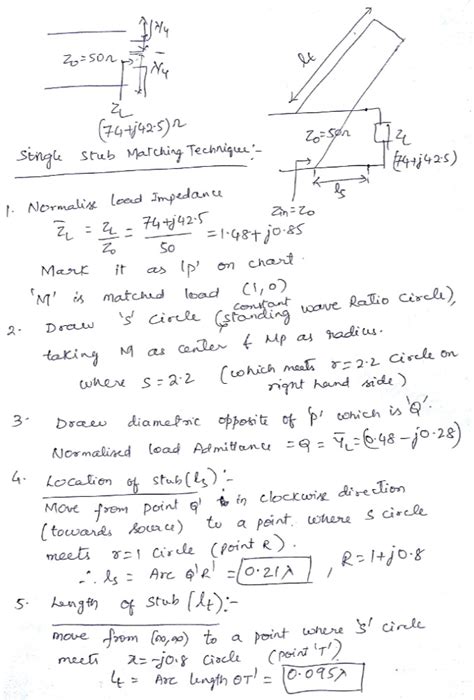 λ/4
Z₀=50Ω
λ/4
Z_L
(74+j42.5)Ω
l_t
Z₀=50Ω
Z_L
(74+j42.5)
l_s
Zin=Z₀
Single Stub Matching Technique:-
1. Normalise Load Impedance
Z̅_L = Z_L/Z₀ = 74+j42.5/50 = 1.48+j0.85
Mark it as 'p' on chart.
'M' is matched load (1,0)
2. Draw 'S' circle (constant standing wave Ratio circle),
taking M as center & Mp as radius.
where S=2.2 (which meets r=2.2 circle on
right hand side)
3. Draw diametric opposite of 'p' which is 'Q'.
Normalised load Admittance = Q = Y̅_L=(0.48-j0.28)
4. Location of stub(l_s):-
Move from point Q' in clockwise direction
(towards source) to a point where S circle
meets r=1 circle (point R).
∴ l_s = Arc Q'R' = 0.21λ , R=1+j0.8
5. Length of stub(l_t):-
move from (∞,∞) to a point where 'S' circle
meets x=-j0.8 circle (point 'T')
l_t = Arc length OT' = 0.095λ